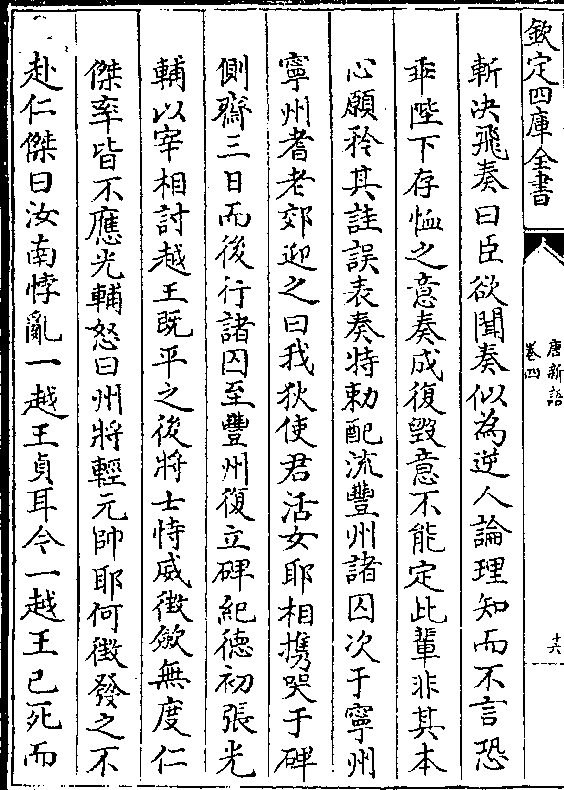 欽定四庫全書
唐新語
卷四
十六
斬决飛奏曰臣欲聞奏似為逆人論理知而不言恐
乖陛下存恤之意奏成復毁意不能定此輩非其本
心願矜其詿誤表奏特勅配流豐州諸囚次于寧州
寧州耆老郊迎之曰我狄使君活女耶相携哭于碑
側齋三日而後行諸囚至豐州復立碑紀德初張光
輔以宰相討越王既平之後將士恃威徵斂無度仁
傑率皆不應光輔怒曰州將輕元帥耶何徵發之不
赴仁傑曰汝南悖亂一越王貞耳今一越王已死而